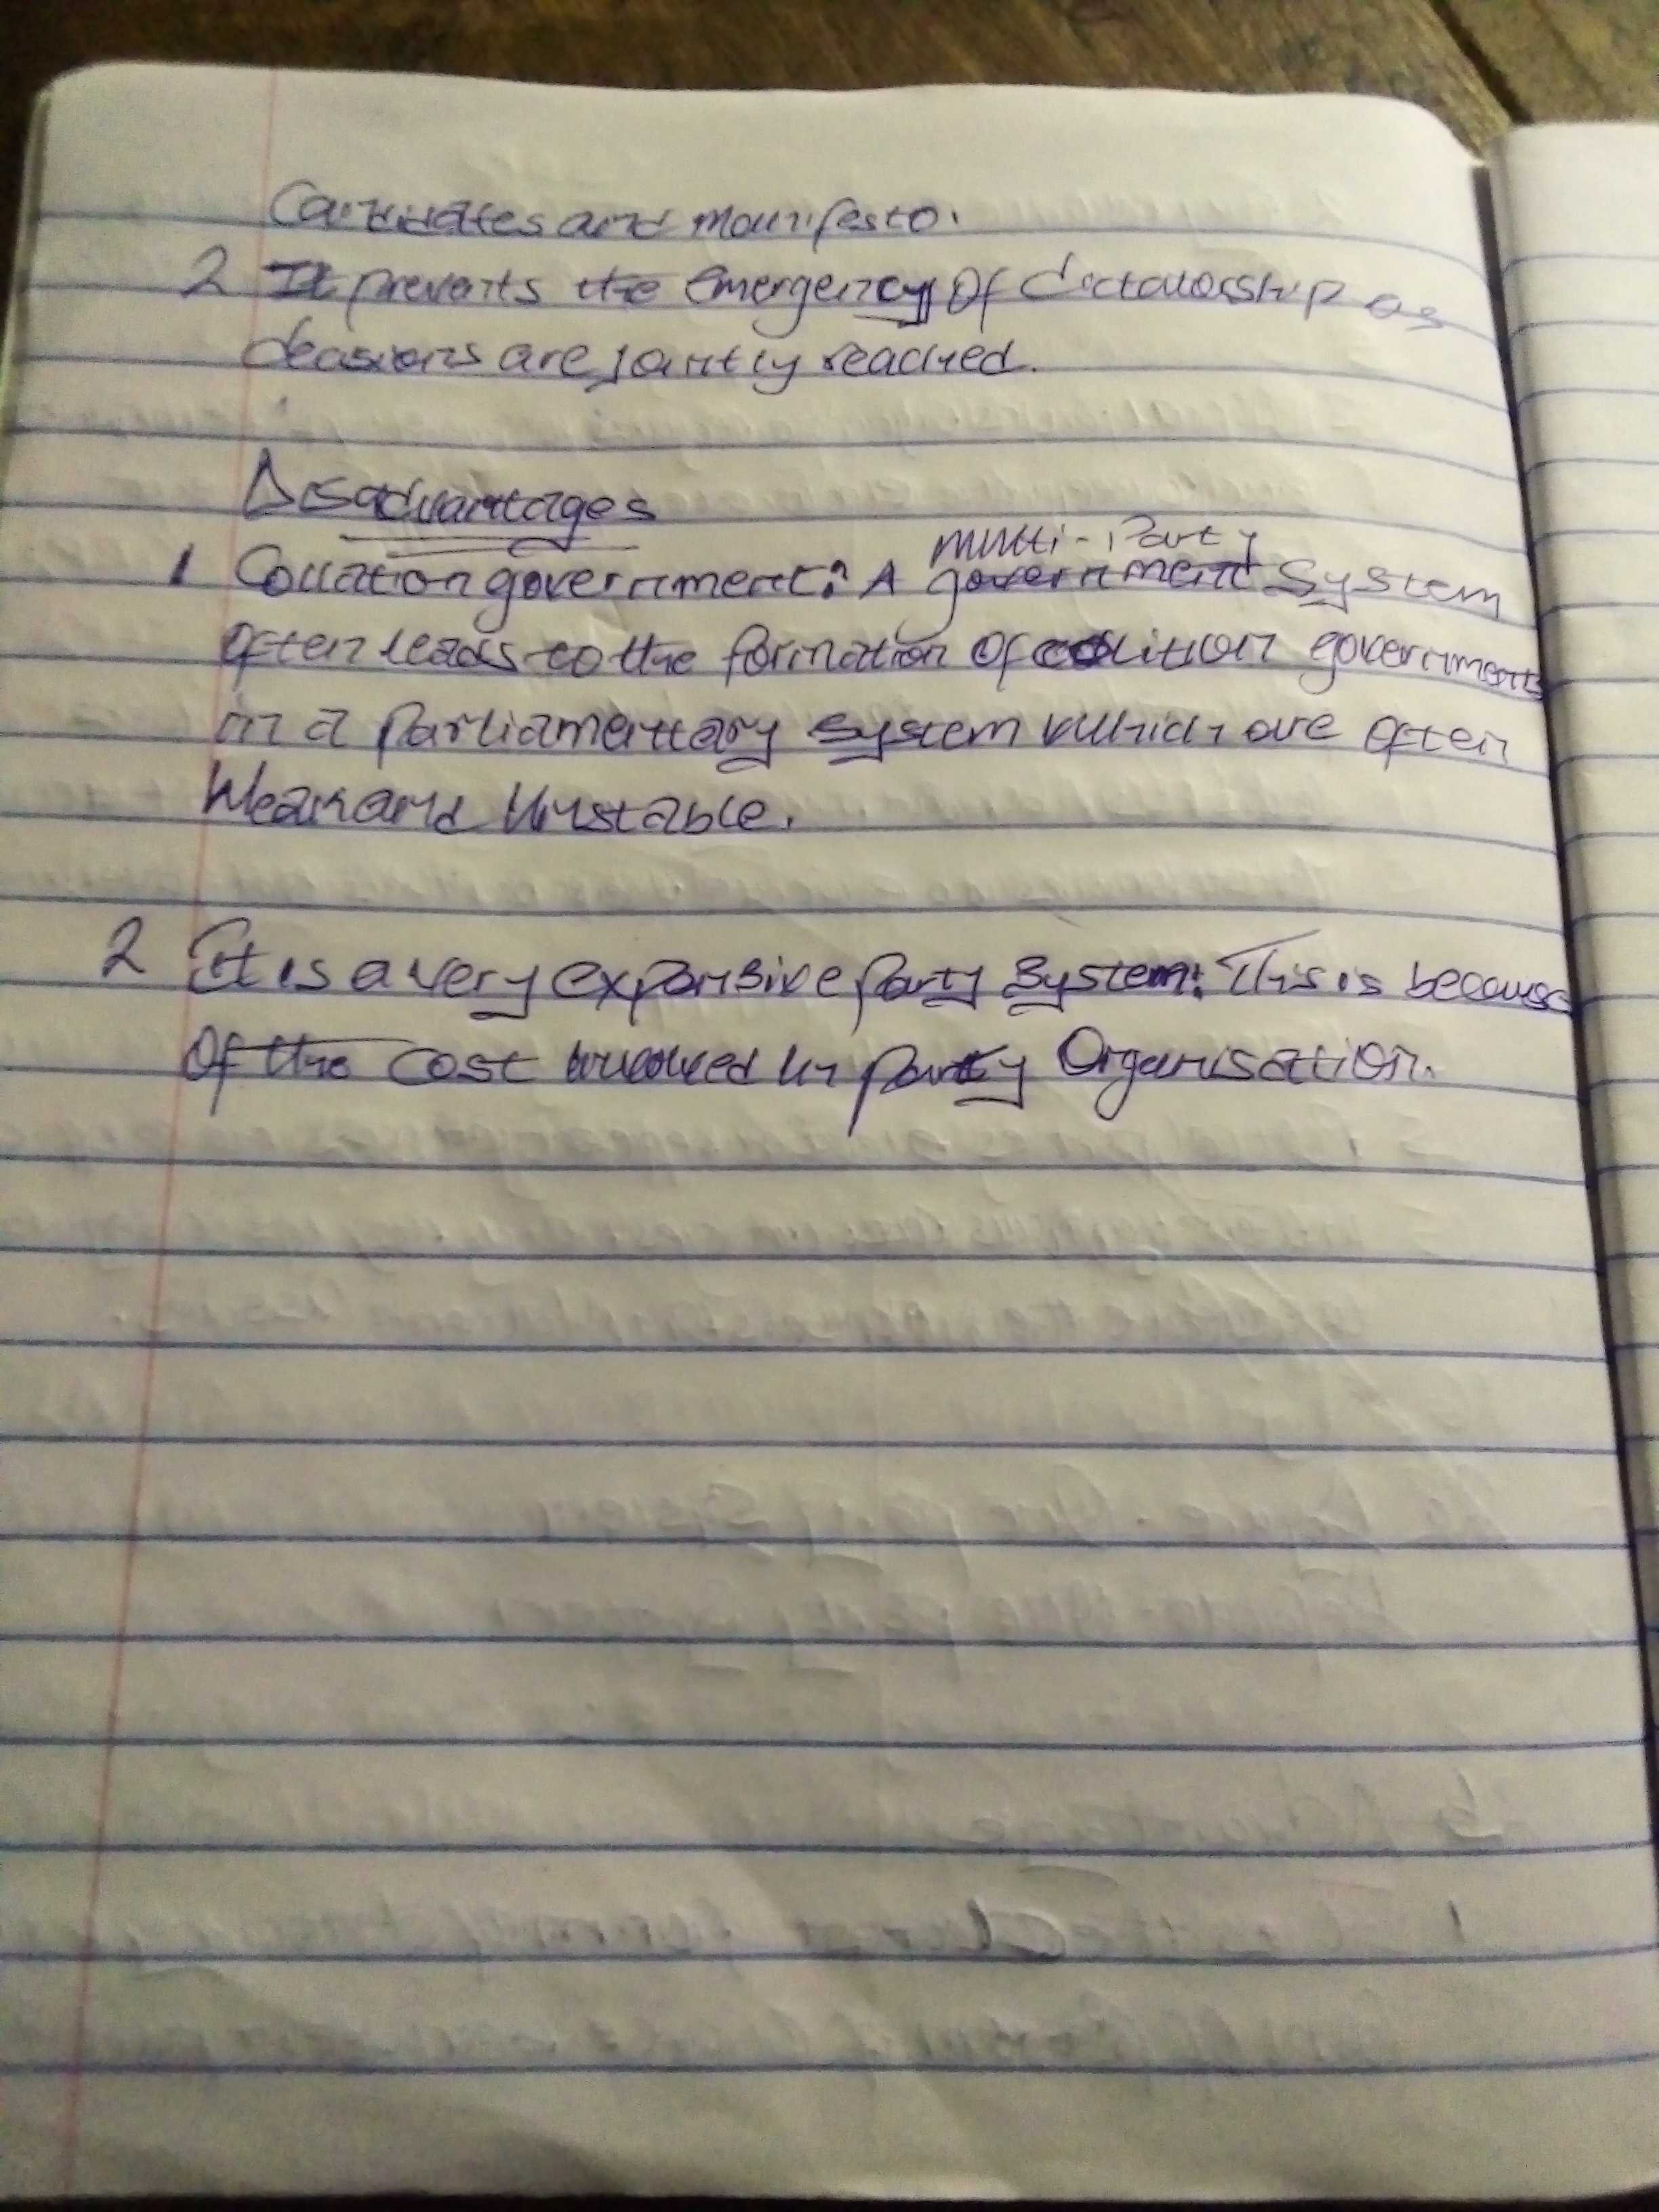 Candidates and manifesto.
2 It prevents the emergency of dictatorship as
decisions are jointly reached.
Disadvantages
multi-party
1 Collation government: A government system
often leads to the formation of colition governments
in a parliamentary system which are often
Weak and Unstable.
2 It is a very expansive party system: This is because
of the cost involved in party Organisation.